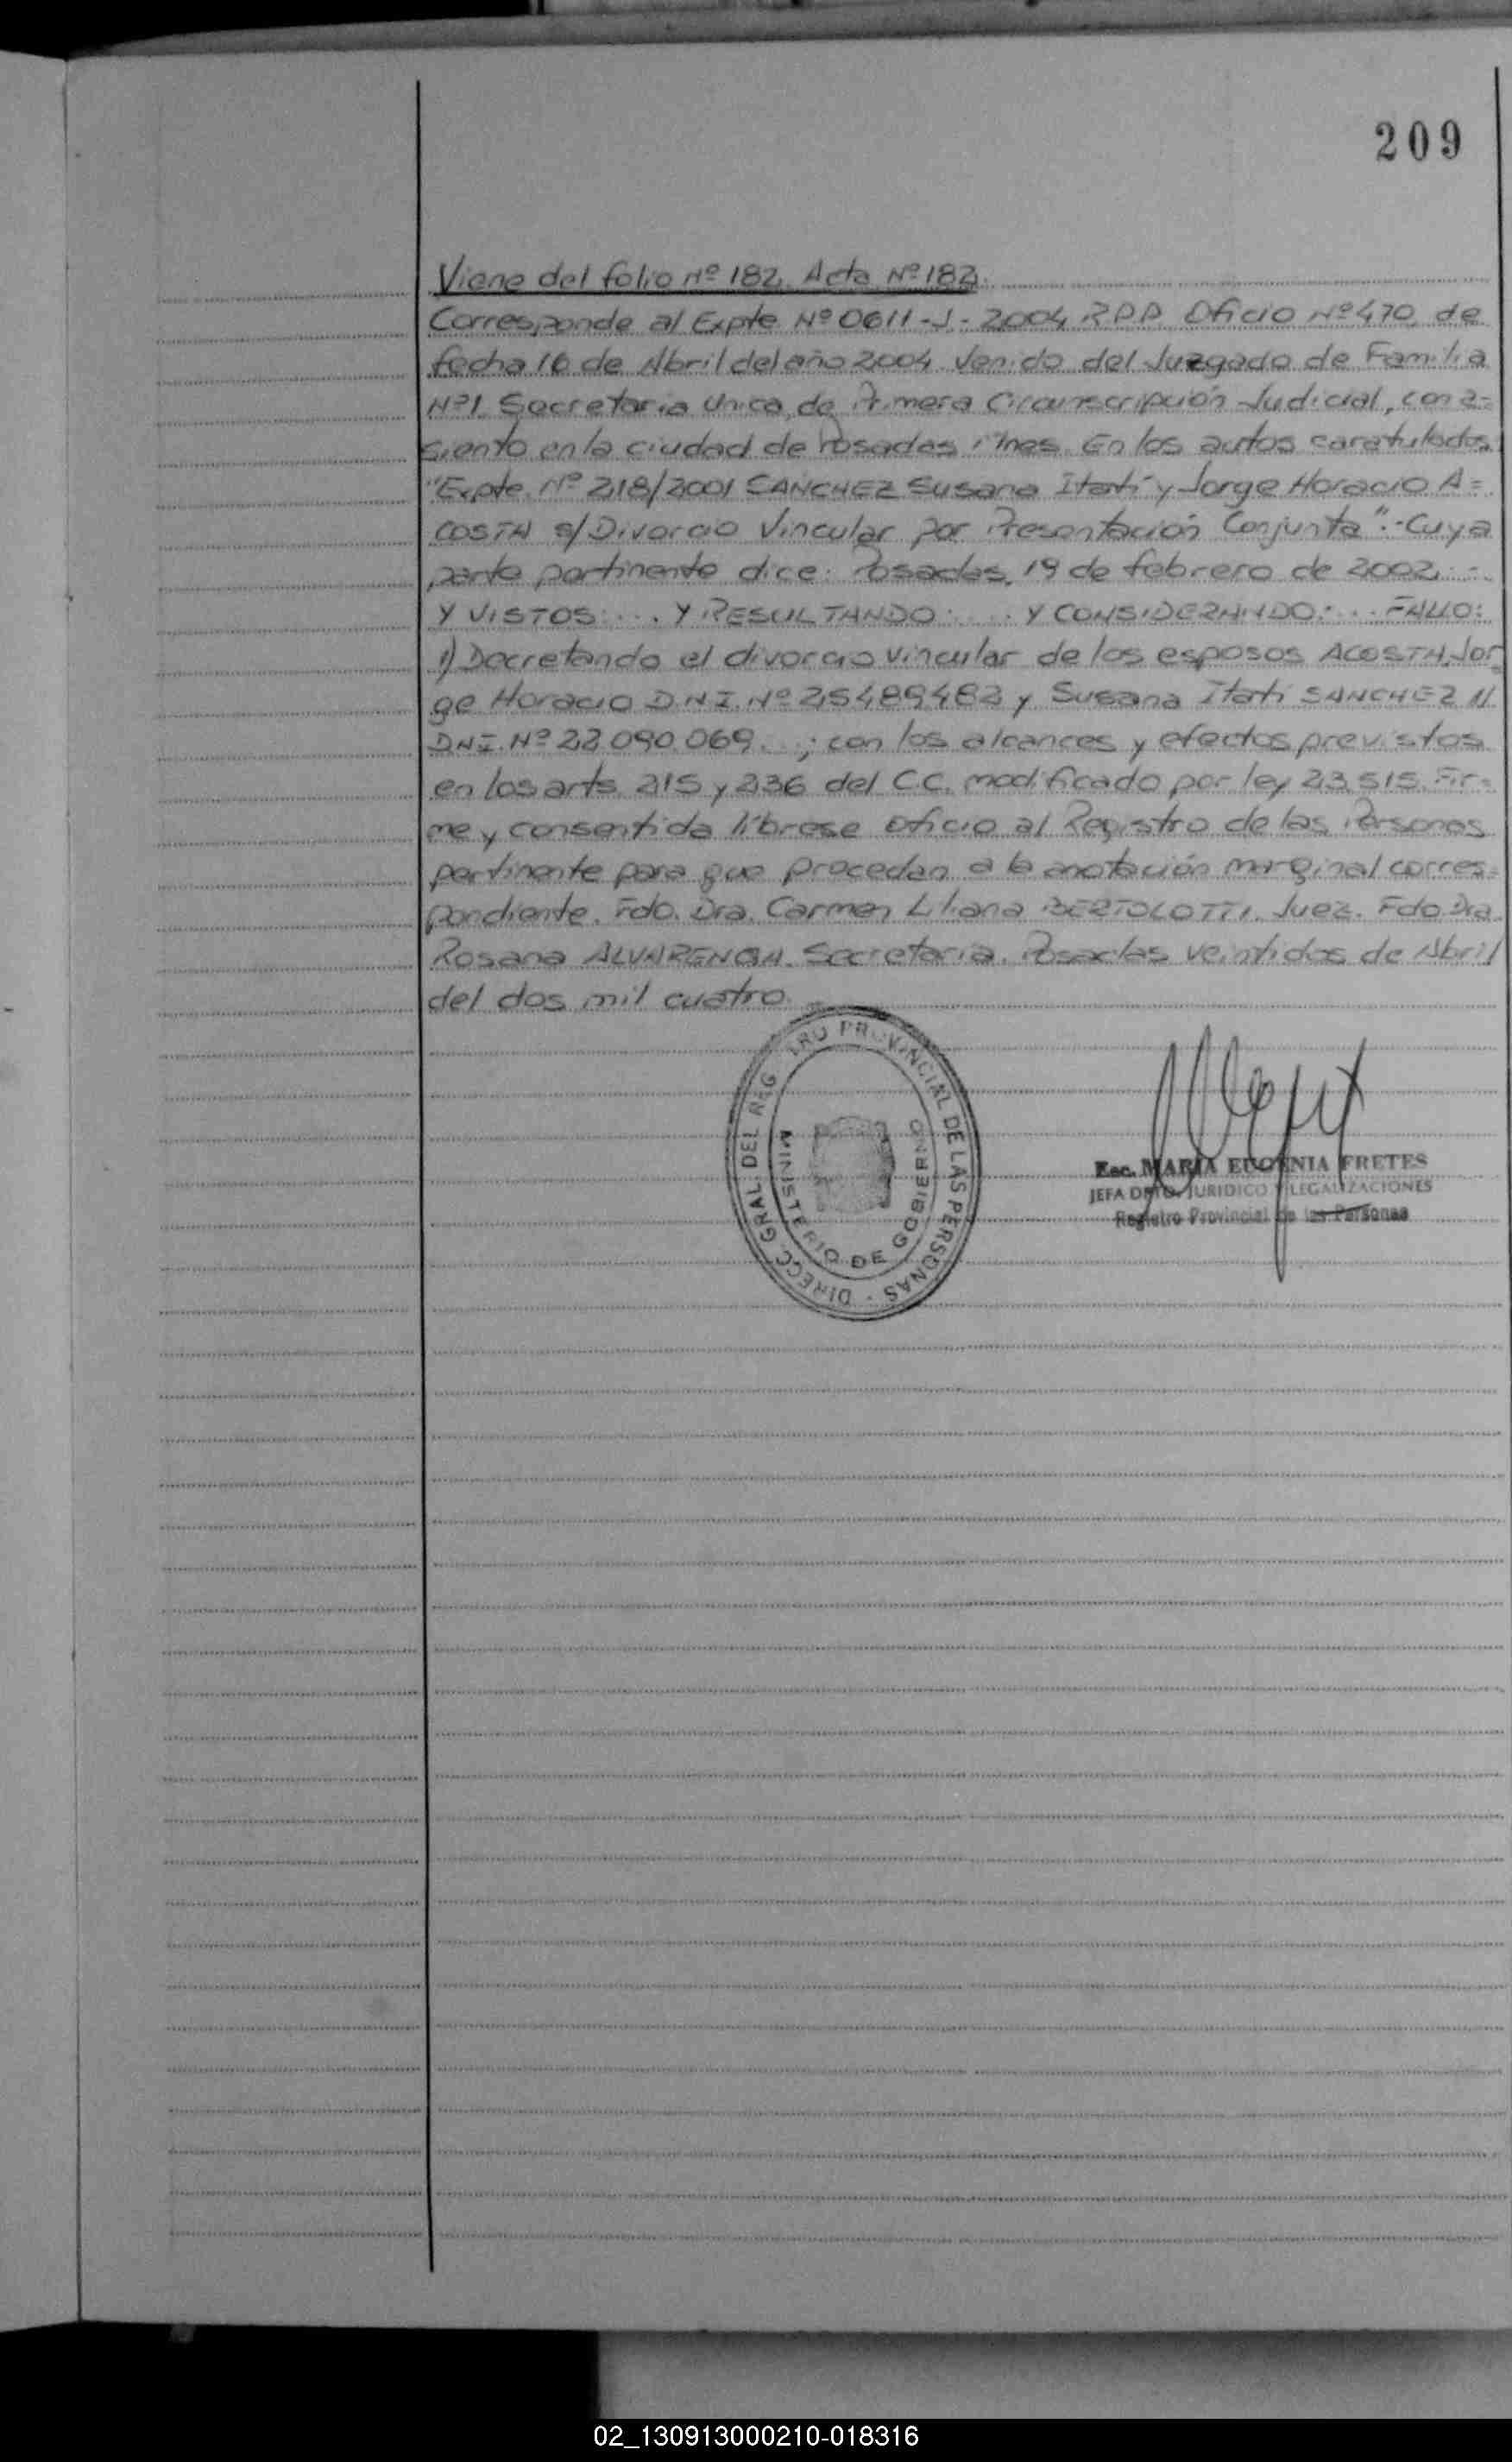 209
Viene del folio Nº 182. Acta Nº 182.
Corresponde al Expte Nº 0611-J-2004 R.P.P. Oficio Nº 470, de
fecha 16 de Abril del año 2004 Venido del Juzgado de Familia
Nº1 Secretaria Unica, de Primera Circunscripción Judicial, con a=
siento en la ciudad de Posadas Mnes. En los autos caratulados
"Expte. Nº 218/2001 SANCHEZ Susana Itatí y Jorge Horacio A=
COSTA s/Divorcio Vincular por Presentación Conjunta".-Cuya
parte pertinente dice: Posadas, 19 de febrero de 2002.-
Y VISTOS:... Y RESULTANDO:... Y CONSIDERANDO:... FALLO:
1) Decretando el divorcio vincular de los esposos ACOSTA, Jor
ge Horacio D.N.I. Nº 25489482 y Susana Itatí SANCHEZ
D.N.I. Nº 22.090.069...; con los alcances y efectos previstos
en los arts. 215 y 236 del C.C. modificado por ley 23.515. Fir=
me y consentida líbrese oficio al Registro de las Personas
pertinente para que procedan a la anotación marginal corres=
pondiente. Fdo. Dra. Carmen Liliana BERTOLOTTI. Juez. Fdo Dra.
Rosana ALVARENGA. Secretaria. Posadas veintidos de Abril
del dos mil cuatro.
DIRECC. GRAL. DEL REG TRO PROVINCIAL DE LAS PERSONAS -
MINISTERIO DE GOBIERNO
Esc. MARIA EUGENIA FRETES
JEFA DPTO. JURIDICO Y LEGALIZACIONES
Registro Provincial de las Personas
02_130913000210-018316